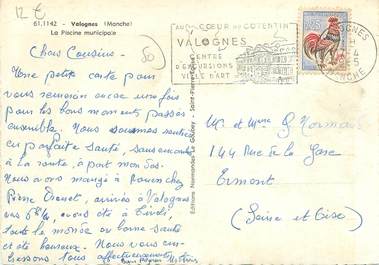 12 €
61.1142 - Valognes (Manche)
La Piscine municipale
50
AU COEUR DU COTENTIN
VALOGNES
CENTRE
D'EXCURSIONS
VILLE D'ART
VALOGNES
MANCHE
0,25
Chers Cousins
Une petite carte pour
vous remercier encore une fois
pour les bons moments passés
ensemble. Nous sommes rentrés
en parfaite santé, sans
à la route, à part mon dos.
Nous avons mangé à Rouen chez
Pierre, arrivés à Valognes
vers, avons été à
toute le monde en bonne santé
et été heureux. Nous vous em-
brassons tous affectueusement
Editions Normandes Le Goubey - Saint-Pierre-Eglise
Mr et Mme G Normand
144 Rue de la Gare
Ermont
(Seine et Oise)